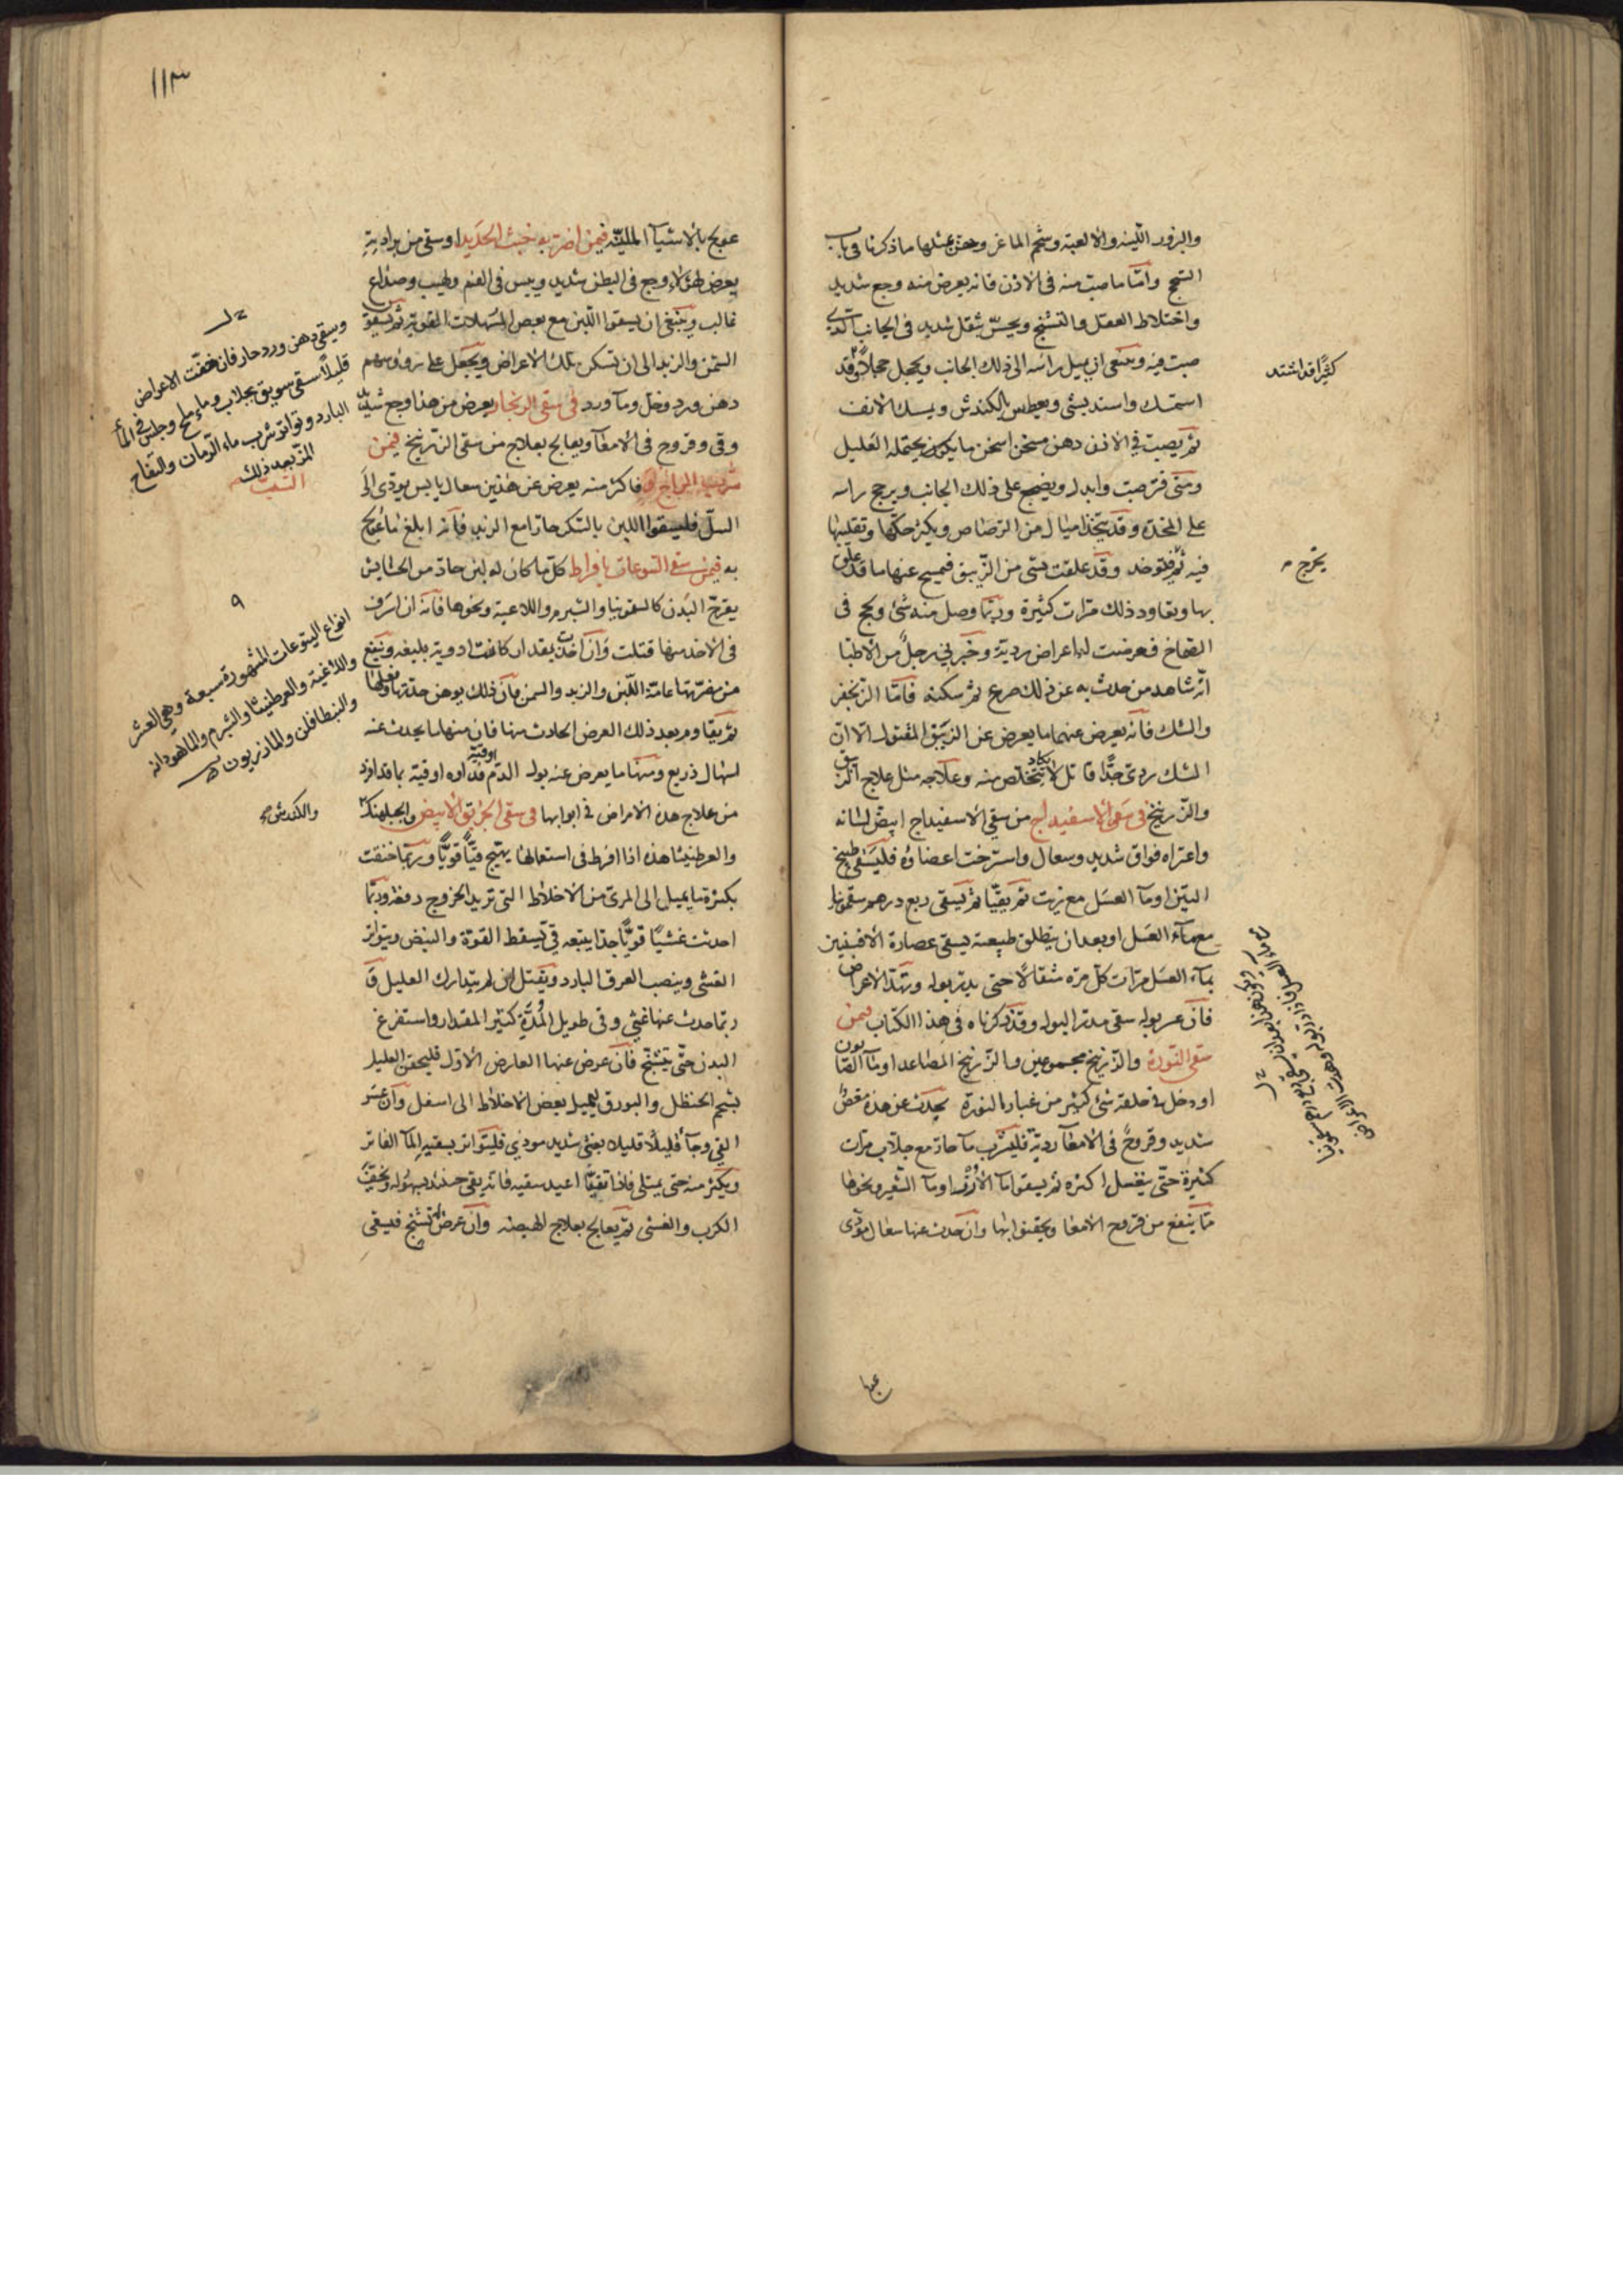 والبزور اللينه والالعبة وشحم الماعز وحقن بمثلها ما ذكرنا فى باب
السحج واما ما صب منه فى الاذن فانه يعرض منه وجع شديد
واختلاط العقل والتشنج ويحس بثقل شديد فى الجانب الذى
صب فيه وينبغى ان يميل راسه الى ذلك الجانب ويحجل حجلا وقد
استمسك واستند بشئ ويعطس بالكندش ويمسك الانف
ثم يصب فى الاذن دهن مسخن اسخن ما يكون يحتمله العليل
ومتى فتر صب وابدل ويضجع على ذلك الجانب ويرجح راسه
على المخدة وقد يتخذ اميال من الرصاص ويكثر حكها وتقليبها
فيه ثم فتوخد وقد علقت بشى من الزيبق فيمسح عنها ما قد علق
بها ويعاود ذلك مرات كثيرة وربما وصل منه شئ ولحج فى
الصماخ فعرضت لها اعراض ردية وخبرنى رجل من الاطبا
انه شاهد من حدث به عن ذلك صرع ثم سكته فاما الزنجفر
والشك فانه يعرض عنهما ما يعرض عن الزيبق المقتول الا ان
الشك ردى جدا قاتل لا يكاد يتخلص منه وعلاجه مثل علاج الزيبق
والزرنيخ فى سقى الاسفيداج من سقى الاسفيداج ابيض لسانه
واعتراه فواق شديد وسعال واسترخت اعضاؤه فليسقى طبيخ
التين او ما العسل مع زيت ثم يقيا ثم يسقى ربع درهم سقمونيا
مع ماء العسل او بعد ان ينطلق طبيعته يسقى عصارة الافسنتين
بماء العسل مرات كل مرة مثقالا حتى يدر بوله وتهدا الاعراض
فان عسر بوله سقى مدر البول وقد ذكرناه فى هذا الكتاب فيمن
سقى النورة والزرنيخ مجموعين والزرنيخ المصاعد او ما الصابون
او دخل فى حلقه شئ كثير من غبار النورة يحدث عن هذه مغص
شديد وقروح فى الامعآ ردية فليشرب مآ حار مع جلاب مرات
كثيرة حتى يغسل اكثره ثم يسقوا مآ الارز او مآ الشعير ونحوها
مما ينفع من قروح الامعا ويحقنوا بها وان حدث عنها سعال مؤذى
كثيرا قد اشتد
يخرج
عنها
١١٣
عولج بالاشيآ المليّنه فيمن اضر به خبث الحديد او سقى من برادته
يعرض لهؤلاء وجع فى البطن شديد ويبس فى الفم ولهيب وصداع
غالب وينبغى ان يسقوا اللبن مع بعض المسهلات القوية ثم يسقون
السمن والزبد الى ان تسكن تلك الاعراض ويجعل على رؤوسهم
دهن ورد وخل ومآ ورد فى سقى الزنجار يعرض من هذا وجع شديد
وقى وقروح فى الامعآ ويعالج بعلاج من سقى الزرنيخ فيمن
شرب الزاج فاكثر منه يعرض عن هذين سعال يابس يودى الى
السل فليسقوا اللبن بالسكر حارا مع الزبد فانه ابلغ ما عولج
به فيمن سقى اليتوعات بافراط كل ما كان له لبن حاد من الحشايش
يقرح البدن كالسقمونيا والشبرم واللاعية ونحوها فانه ان اسرف
فى الاخذ منها قتلت وان اخذت بمقدار كانت ادوية بليغه وينفع
من مضرتها عامة اللبن والزبد والسمن فان ذلك يوهن حدتها وفعلها
ثم يقاوم بعد ذلك العرض الحادث منها فان منها ما يحدث عنه
اسهال ذريع ومنها ما يعرض عنه بول الدم فداوه اوقية بما قد افرد
من علاج هذه الامراض فى ابوابها فى سقى الخربق الابيض والجبلهنك
والعرطنيثا هذه اذا افرط فى استعمالها يهيج قيئا قويا وربما خنقت
بكثرة ما يميل الى المرى من الاخلاط التى تريد الخروج دفعة وربما
احدثت غشيا قويا جدا يتبعه قى تسقط القوة والنبض ويتواتر
الغشى وينصب العرق البارد ويقتل ان لم يتدارك العليل وقد
ربما حدث عنها غثى وقى طويل المدة كثير المقدار واستفرغ
البدن حتى يتشنج فان عرض عنها العارض الاول فليحقن العليل
بشحم الحنظل والبورق ليميل بعض الاخلاط الى اسفل وان عسر
القى وجآ قليلا قليلا بغثى شديد موذى فليتواتر بسقيه المآ الفاتر
ويكثر منه حتى يمتلى فاذا تقيا اعيد سقيه فانه يقى حينئذ بسهوله ويخف
الكرب والغشى ثم يعالج بعلاج الهيضه وان عرض له تشنج فيسقى
وسقى دهن ورد حار فان خفت الاعراض
قليلا سقى سويق بجلاب وماء ثلج وجلس فى المآ
البارد وتواتر شرب ماء الرمان والتفاح
المز بعد ذلك
الشب
انواع اليتوعات المشهورة سبعة وهى العشر
واللاعية والعرطنيثا والشبرم والماهودانه
والنبطافلن والمازريون
والكندش